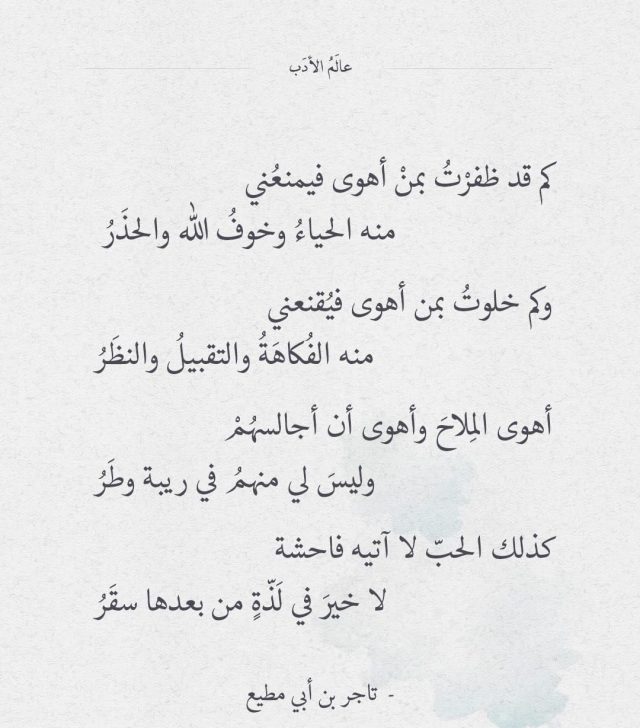 عالَمُ الأدَب
كم قد ظفرْتُ بمنْ أهوى فيمنعُني
منه الحياءُ وخوفُ الله والحذَرُ
وكم خلوتُ بمن أهوى فيُقنعني
منه الفُكاهَةُ والتقبيلُ والنظَرُ
أهوى المِلاحَ وأهوى أن أجالسهُمْ
وليسَ لي منهمُ في ريبة وطَرُ
كذلك الحبّ لا آتيه فاحشة
لا خيرَ في لَذّةٍ من بعدها سقَرُ
- تاجر بن أبي مطيع